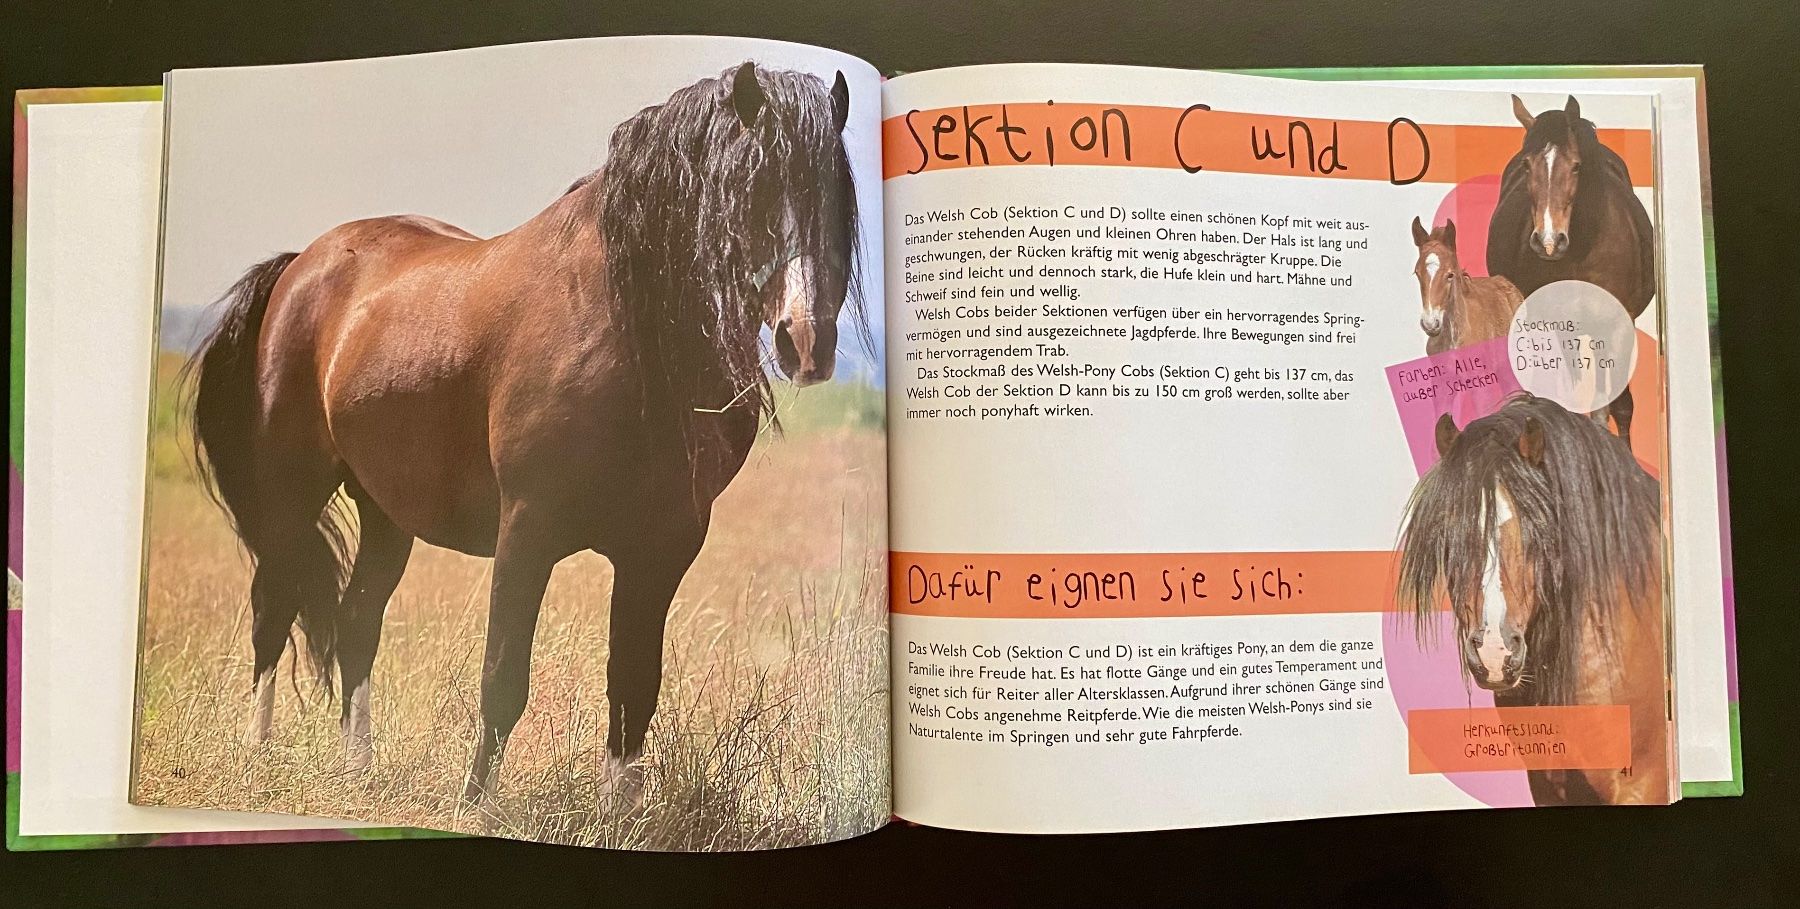 Sektion C und D
Das Welsh Cob (Sektion C und D) sollte einen schönen Kopf mit weit aus-
einander stehenden Augen und kleinen Ohren haben. Der Hals ist lang und
geschwungen, der Rücken kräftig mit wenig abgeschrägter Kruppe. Die
Beine sind leicht und dennoch stark, die Hufe klein und hart. Mähne und
Schweif sind fein und wellig.
Welsh Cobs beider Sektionen verfügen über ein hervorragendes Spring-
vermögen und sind ausgezeichnete Jagdpferde. Ihre Bewegungen sind frei
mit hervorragendem Trab.
Das Stockmaß des Welsh-Pony Cobs (Sektion C) geht bis 137 cm, das
Welsh Cob der Sektion D kann bis zu 150 cm groß werden, sollte aber
immer noch ponyhaft wirken.
Stockmaß:
C: bis 137 cm
D: über 137 cm
Farben: Alle,
außer Schecken
Dafür eignen sie sich:
Das Welsh Cob (Sektion C und D) ist ein kräftiges Pony, an dem die ganze
Familie ihre Freude hat. Es hat flotte Gänge und ein gutes Temperament und
eignet sich für Reiter aller Altersklassen. Aufgrund ihrer schönen Gänge sind
Welsh Cobs angenehme Reitpferde. Wie die meisten Welsh-Ponys sind sie
Naturtalente im Springen und sehr gute Fahrpferde.
Herkunftsland:
Großbritannien
40
41